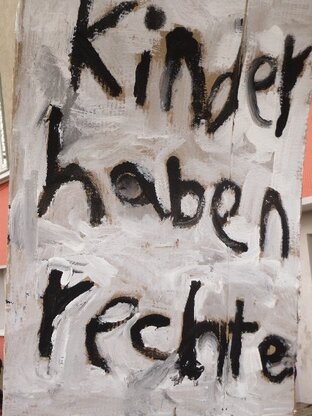 Kinder
haben
rechte